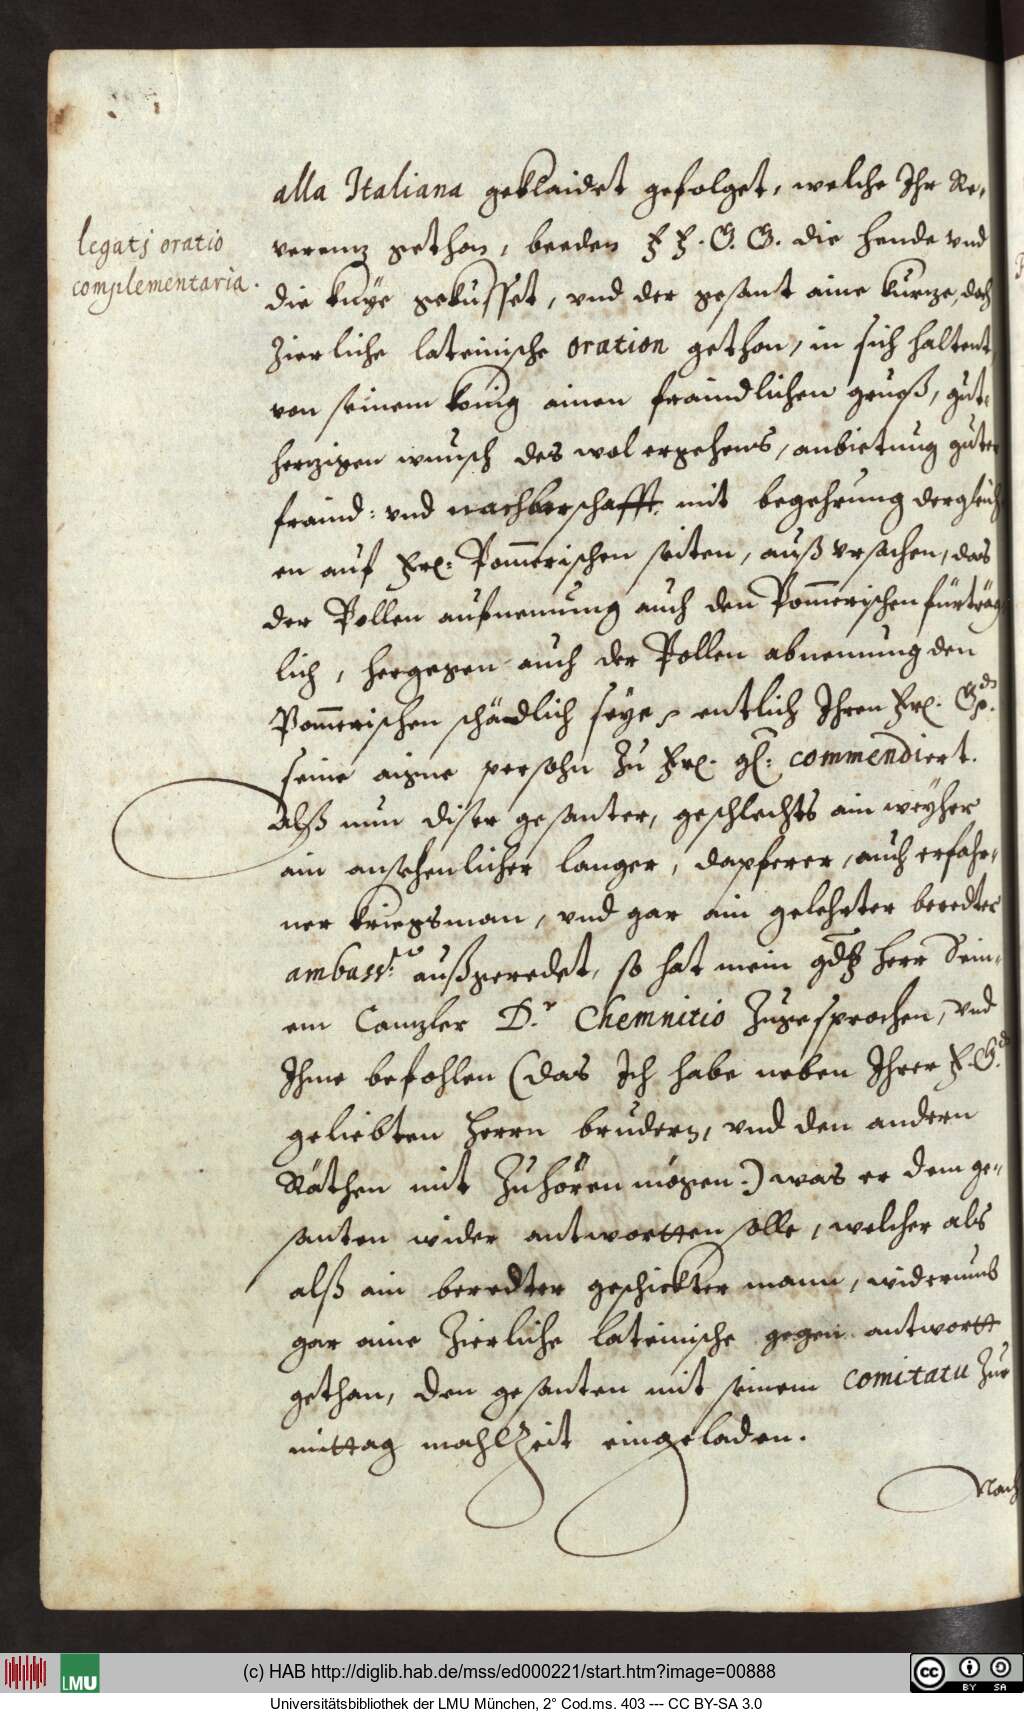 legatj oratio
complementaria.
alla Italiana geklaidet gefolget, welche Ihr Re-
verenz gethon, beeden F F. G. G. die hende vnd
die knÿe gekusset, vnd der gesant aine kurze, doch
Zierliche lateinische oration gethon, in sich haltent,
von seinem könig ainen fraindlichen grueß, gut-
herzigen wunsch des wol ergehens, anbietung guter
fraind: vnd nachberschafft, mit begehrung dergleich-
en auf Frl: Pom̄erischen seiten, auß vrsachen, das
der Pollen aufnemung auch den Pom̄erischen fürträg-
lich, hergegen auch der Pollen abnemung den
Pom̄erischen schädlich seye, entlich Ihren Frl. Gd.
seine aigne persohn zu Frl. gl: commendiert.
Alß nun diser gesanter, geschlechts ain weÿher
ain ansehenlicher langer, dapferer, auch erfahr-
ner kriegsman, vnd gar ain gelehrter beredter
ambass: außgeredet, so hat mein gd herr Sein-
em Canzler D.r Chemnitio Zugesprochen, vnd
Ihme befohlen (das Ich habe neben Ihrer F. G.
geliebten herrn brudern, vnd den andern
Räthen mit Zuhören mögen:) was er dem ge-
santen wider antwortten solle, welcher als
alß ain beredter geschickter mann, widerumb
gar aine Zierliche lateinische gegen antwortt
gethan, den gesanten mit seinem comitatu Zur
mittag mahlzeit eingeladen.
Nach
LMU
(c) HAB http://diglib.hab.de/mss/ed000221/start.htm?image=00888
cc BY SA
Universitätsbibliothek der LMU München, 2° Cod.ms. 403 --- CC BY-SA 3.0